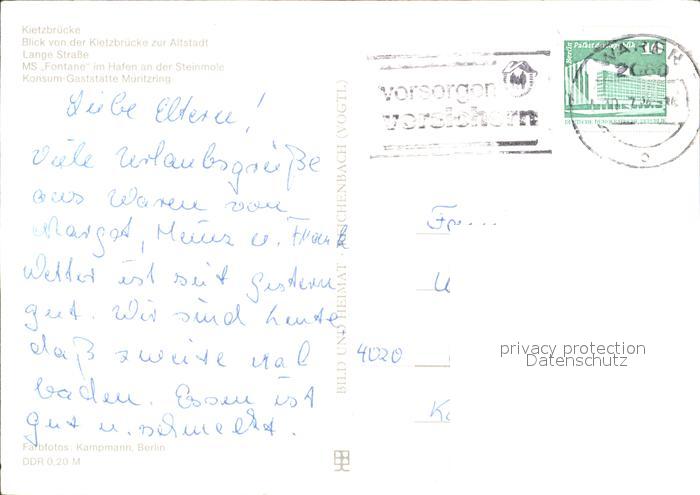 Kietzbrücke
Blick von der Kietzbrücke zur Altstadt
Lange Straße
MS „Fontane" im Hafen an der Steinmole
Konsum-Gaststätte Müritzring
Liebe Eltern!
Viele Urlaubsgrüße
aus Waren von
Margot, Heinz u. Frank
Wetter ist seit gestern
gut. Wir sind heute
daß zweite mal
baden. Essen ist
gut u. schmeckt.
Farbfotos: Kampmann, Berlin
DDR 0,20 M
BILD UND HEIMAT · REICHENBACH (VOGTL)
vorsorgen
versichern
Berlin Palast der Republik 10
DEUTSCHE DEMOKRATISCHE REPUBLIK
WAREN
2060
Fr...
4020
privacy protection
Datenschutz